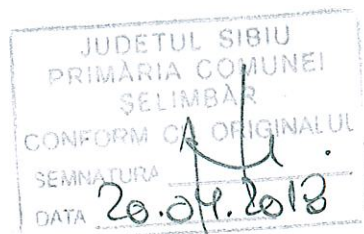 JUDEȚUL SIBIU
PRIMĂRIA COMUNEI
ȘELIMBĂR
CONFORM CU ORIGINALUL
SEMNĂTURA
DATA 20.04.2018